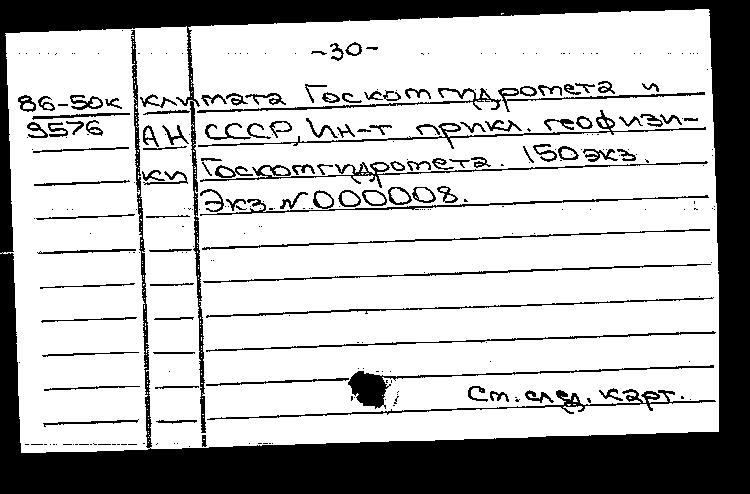 -30-
86-50к климата Госкомгидромета и
9576 АН СССР, Ин-т прикл. геофизи-
ки Госкомгидромета. 150 экз.
Экз. № 000008.
См. след. карт.